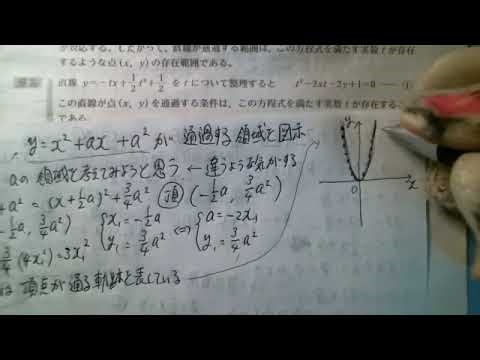 が対応する。したがって、直線が通過する範囲は、この方程式を満たす実数 t が存在
するような点(x, y)の存在範囲である。
直線 y=-tx+1/2t²+1/2 を t について整理すると t²-2xt-2y+1=0 ……①
この直線が点(x, y)を通過する条件は、この方程式を満たす実数 t が存在する
である。
y=x²+ax+a² が 通過する 領域を図示
aの領域を考えてみようと思う ← 違うような気がする
+a² = (x+½a)²+¾a² 頂 (-½a, ¾a²)
-½a, ¾a²) { x₁=-½a y₁=¾a² ⇔ { a=-2x₁ y₁=¾a²
¾(4x²)=3x₁²
は 頂点が通る軌跡を表している
y
O
x